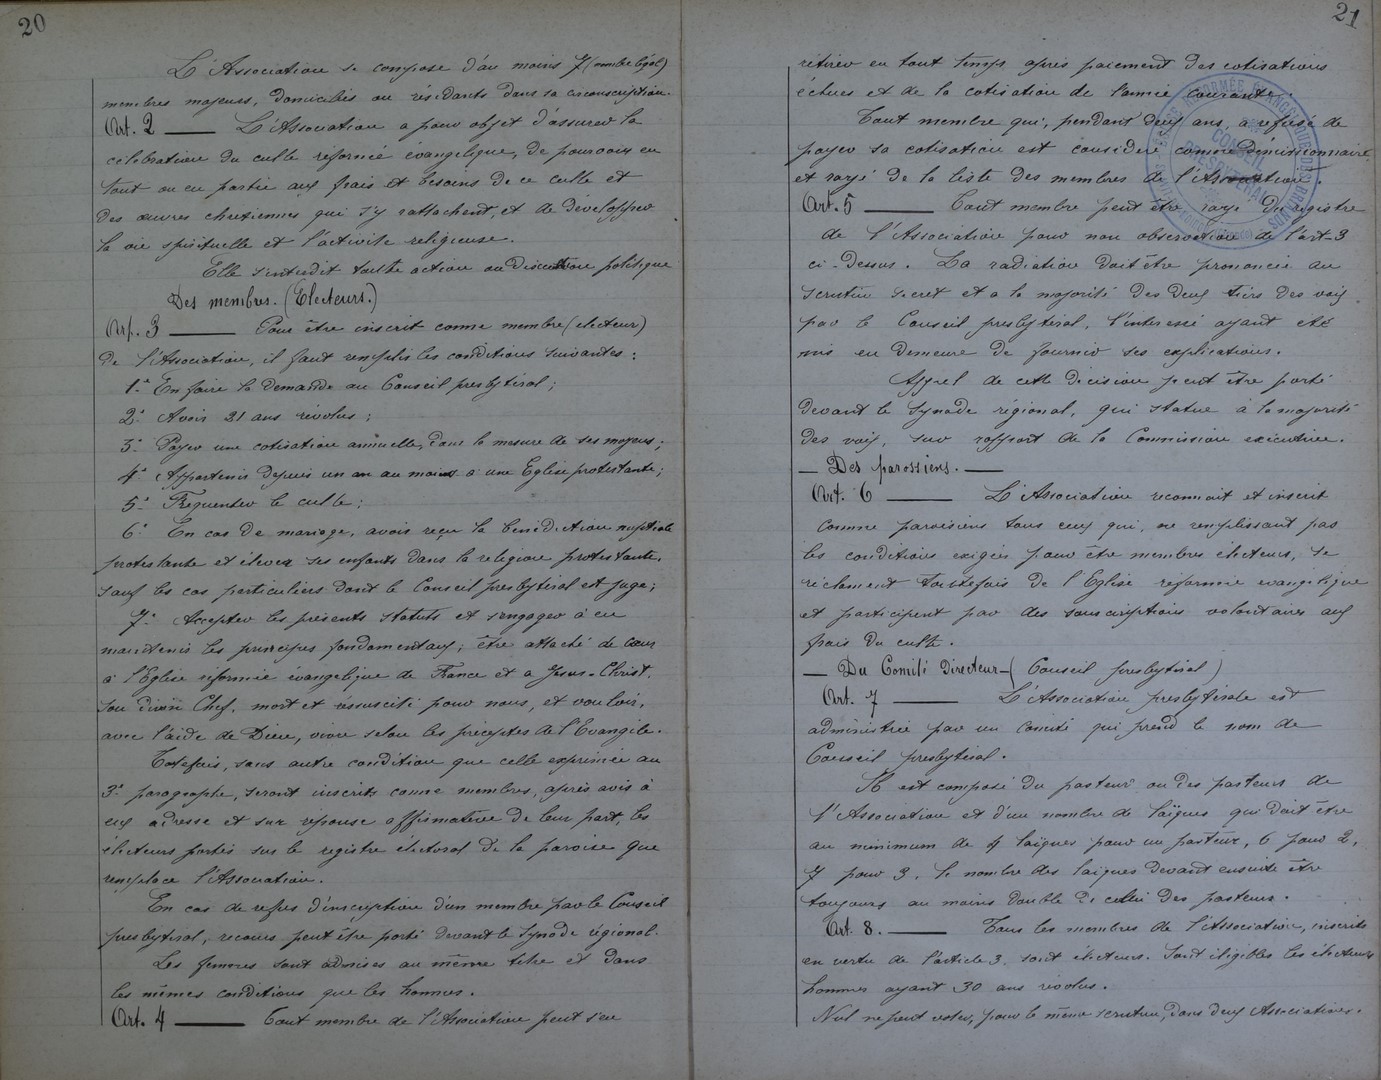 20
L'Association se compose d'au moins 7 (nombre légal)
membres majeurs, domiciliés ou résidants dans sa circonscription.
Art. 2 — L'Association a pour objet d'assurer la
célébration du culte réformé évangélique, de pourvoir en
tout ou en partie aux frais et besoins de ce culte et
des œuvres chrétiennes qui s'y rattachent, et de développer
la vie spirituelle et l'activité religieuse.
Elle s'interdit toute action ou discussion politique
Des membres. (Electeurs.)
Art. 3 — Pour être inscrit comme membre (électeur)
de l'Association, il faut remplir les conditions suivantes :
1° En faire la demande au Conseil presbytéral ;
2° Avoir 21 ans révolus ;
3° Payer une cotisation annuelle, dans la mesure de ses moyens ;
4° Appartenir depuis un an au moins à une Eglise protestante ;
5° Fréquenter le culte ;
6° En cas de mariage, avoir reçu la bénédiction nuptiale
protestante et élever ses enfants dans la religion protestante,
sauf les cas particuliers dont le Conseil presbytéral est juge ;
7° Accepter les présents statuts et s'engager à en
maintenir les principes fondamentaux ; être attaché de cœur
à l'Eglise réformée évangélique de France et à Jésus-Christ,
son divin Chef, mort et réssucité pour nous, et vouloir,
avec l'aide de Dieu, vivre selon les préceptes de l'Evangile.
Toutefois, sans autre condition que celle exprimée au
3° paragraphe, seront inscrits comme membres, après avis à
eux adressé et sur réponse affirmative de leur part, les
électeurs portés sur le registre électoral de la paroisse que
remplace l'Association.
En cas de refus d'inscription d'un membre par le Conseil
presbytéral, recours peut être porté devant le Synode régional.
Les femmes sont admises au même titre et dans
les mêmes conditions que les hommes.
Art. 4 — Tout membre de l'Association peut s'en
21
retirer en tout temps après paiement des cotisations
échues et de la cotisation de l'année courante.
Tout membre qui, pendant deux ans, a refusé de
payer sa cotisation est considéré comme démissionnaire
et rayé de la liste des membres de l'Association.
Art. 5 — Tout membre peut être rayé du registre
de l'Association pour non observation de l'art-3
ci-dessus. La radiation doit être prononcée au
scrutin secret et à la majorité des deux tiers des voix
par le Conseil presbytéral, l'intéressé ayant été
mis en demeure de fournir ses explications.
Appel de cette décision peut être porté
devant le Synode régional, qui statue à la majorité
des voix, sur rapport de la Commission exécutive.
— Des parossiens. —
Art. 6 — L'Association reconnait et inscrit
comme paroisiens tous ceux qui, ne remplissant pas
les conditions exigées pour être membres électeurs, se
réclament toutefois de l'Eglise réformée évangélique
et participent par des souscriptions volontaires aux
frais du culte.
— Du Comité Directeur — (Conseil presbytéral)
Art. 7 — L'Association presbytérale est
administrée par un comité qui prend le nom de
Conseil presbytéral.
Il est composé du pasteur ou des pasteurs de
l'Association et d'un nombre de laïques qui doit être
au minimum de 4 laïques pour un pasteur, 6 pour 2,
7 pour 3, le nombre des laïques devant ensuite être
toujours au moins double de celui des pasteurs.
Art. 8. — Tous les membres de l'Association, inscrits
en vertu de l'article 3, sont électeurs. Sont éligibles les électeurs
hommes ayant 30 ans révolus.
Nul ne peut voter, pour le même scrutin, dans deux Associations.
CONSEIL
PRESBYTÉRAL